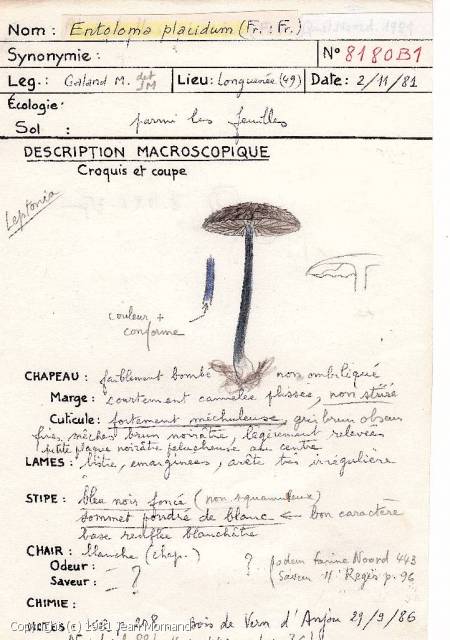 Nom : Entoloma placidum (Fr. : Fr.)
Synonymie :
N° 8180B1
Leg. : Galand M. det JM Lieu : Longuenée (49) Date : 2/11/81
Écologie :
Sol : parmi les feuilles
DESCRIPTION MACROSCOPIQUE
Croquis et coupe
Leptonia
couleur +
conforme
CHAPEAU : faiblement bombé non ombiliqué
Marge : courtement cannelée plissée, non striée
Cuticule : fortement méchuleuse, gris brun obscur
fines mèches brun noirâtre, légèrement relevées
petite plaque noirâtre pelucheuse au centre
LAMES : bistre, emarginées, arête très irrégulière
STIPE : bleu noir foncé (non squamuleux)
sommet poudré de blanc ← bon caractère
base renflée blanchâtre
CHAIR : blanche (chap.)
Odeur : ? ? farine Noord 443
Saveur : (Saveur " Regés p. 96
CHIMIE :
Copyright (c) 1981 Jean Mornand
NOTES : Bois de Vern d'Anjou 29/9/86